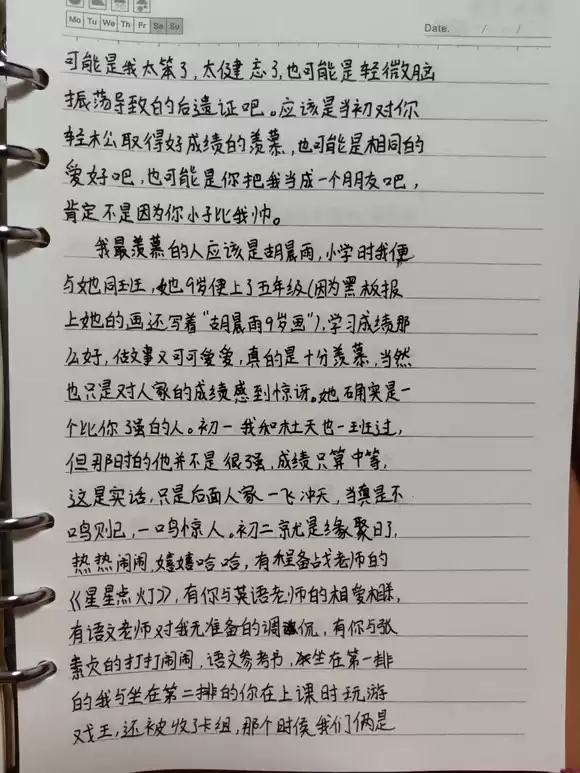 Mo Tu We Th Fr Sa Su
Date. / /
可能是我太笨了,太健忘了,也可能是轻微脑
振荡导致的后遗证吧。应该是当初对你
轻松取得好成绩的羡慕,也可能是相同的
爱好吧,也可能是你把我当成一个朋友吧,
肯定不是因为你小子比我帅。
我最羡慕的人应该是胡晨雨,小学时我便
与她同班,她9岁便上了五年级(因为黑板报
上她的画还写着“胡晨雨9岁画”),学习成绩那
么好,做事又可可爱爱,真的是十分羡慕,当然
也只是对人家的成绩感到惊讶。她确实是一
个比你了强的人。初一我和杜天也一班过,
但那时的他并不是很强,成绩只算中等,
这是实话,只是后面人家一飞冲天,当真是不
鸣则已,一鸣惊人。初二京尤是缘聚日了,
热热闹闹,嬉嬉哈哈,有程备战老师的
《星星点灯》,有你与英语老师的相爱相
有语文老师对我无准备的调侃,有你与张
素贞的打打闹闹,语文参考书,坐在第一排
的我与坐在第二排的你在上课时玩游
戏王,还被收了卡组,那个时侯我们俩是